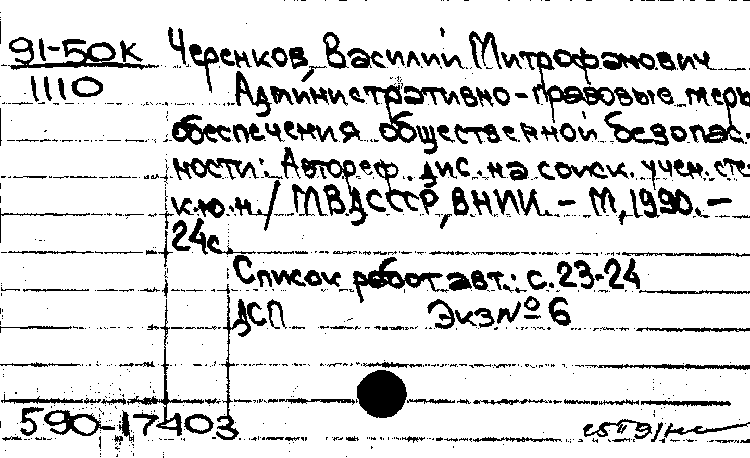 91-50к Черенков, Василий Митрофанович
1110 Административно-правовые меры
обеспечения общественной безопас-
ности: Автореф. дис. на соиск. учен. сте
к.ю.н. / МВД СССР, ВНИИ. – М., 1990. –
24с.
Список работ авт.: с. 23-24
ДСП Экз № 6
590-17403